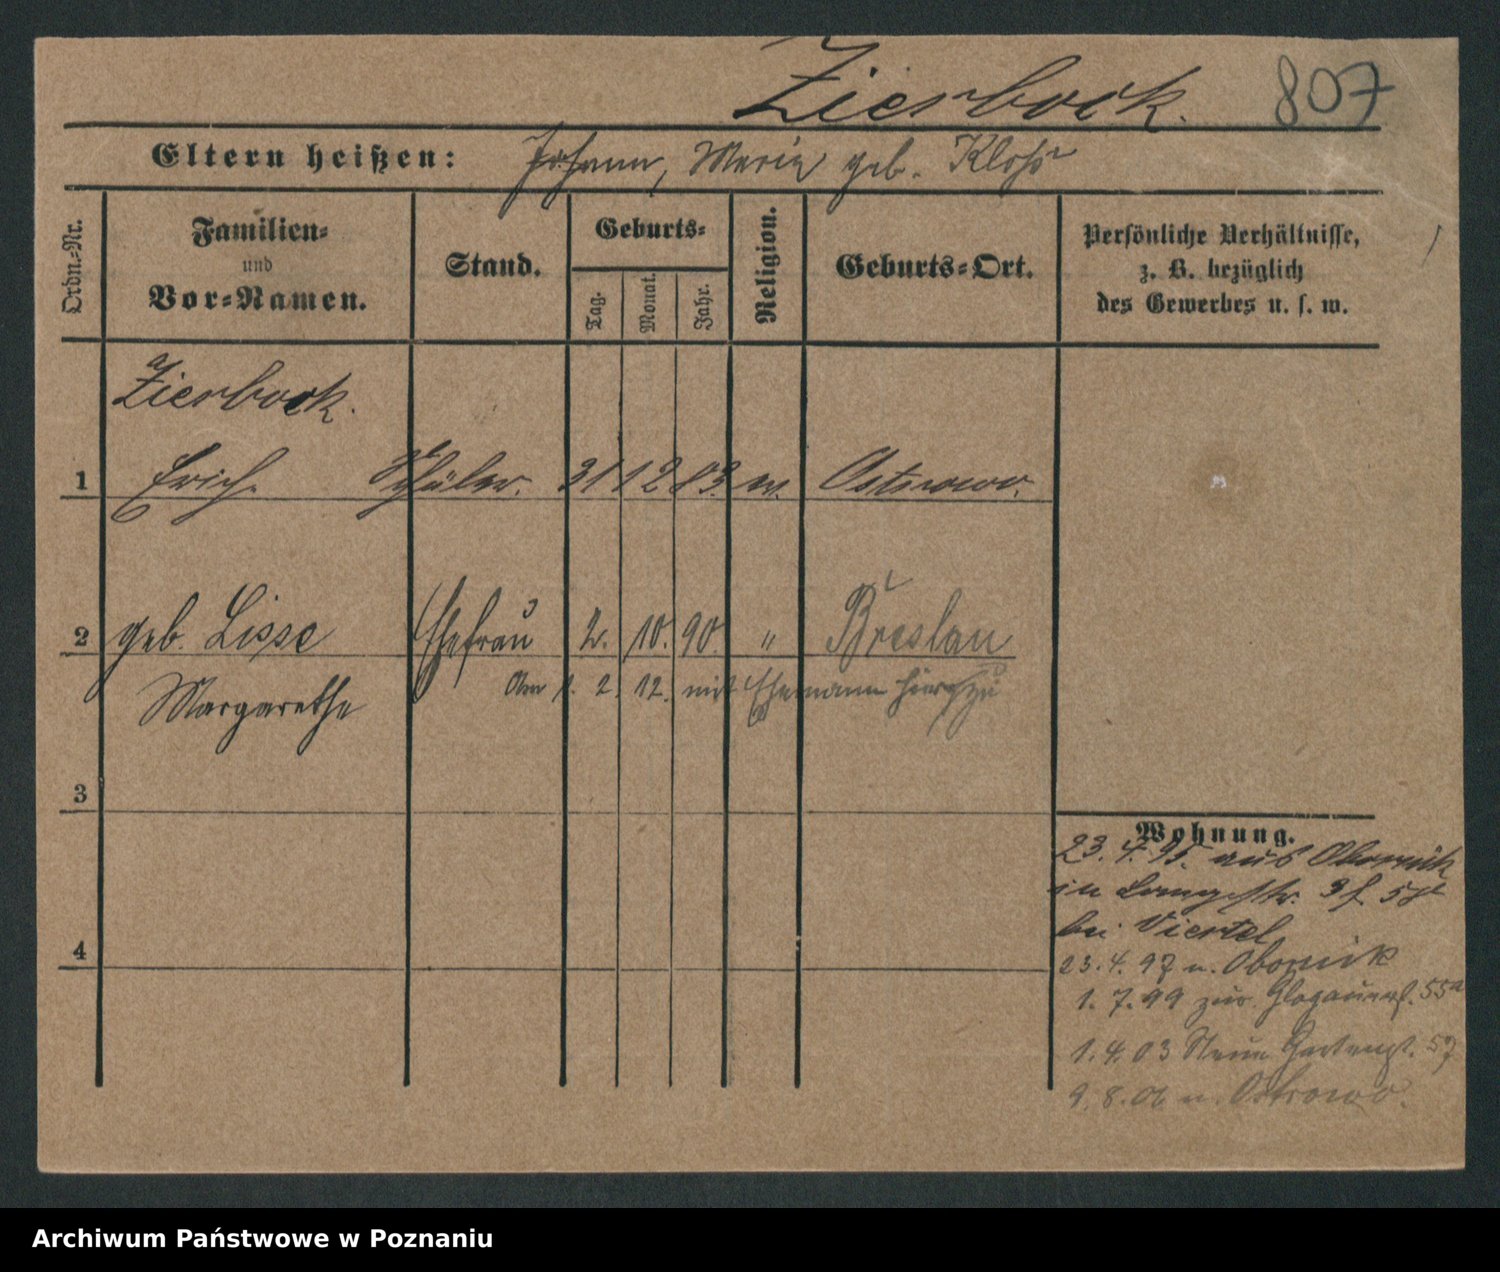 Zierbock. 807
Eltern heißen: Johann, Maria geb. Klose
Ordn.-Nr.
Familien-
und
Vor-Namen.
Stand.
Geburts-
Tag.
Monat.
Jahr.
Religion.
Geburts-Ort.
Persönliche Verhältnisse,
z. B. bezüglich
des Gewerbes u. s. w.
Zierbock.
1 Erich Schüler. 31 12 83. ev. Ostrowo.
2 geb. Lisse Ehefrau 2. 10. 90. " Breslau
Margarethe
1. 2. 12. mit Ehemann hierzu
3
4
Wohnung.
23. 4. 95. aus Obornik
in Langestr. 3
bei Viertel
23. 4. 97 n. Obornik
1. 7. 99 zur. Glogauerst. 55a
1. 4. 03 Neue Gartenst. 57
9. 8. 06 n. Ostrowo.
Archiwum Państwowe w Poznaniu